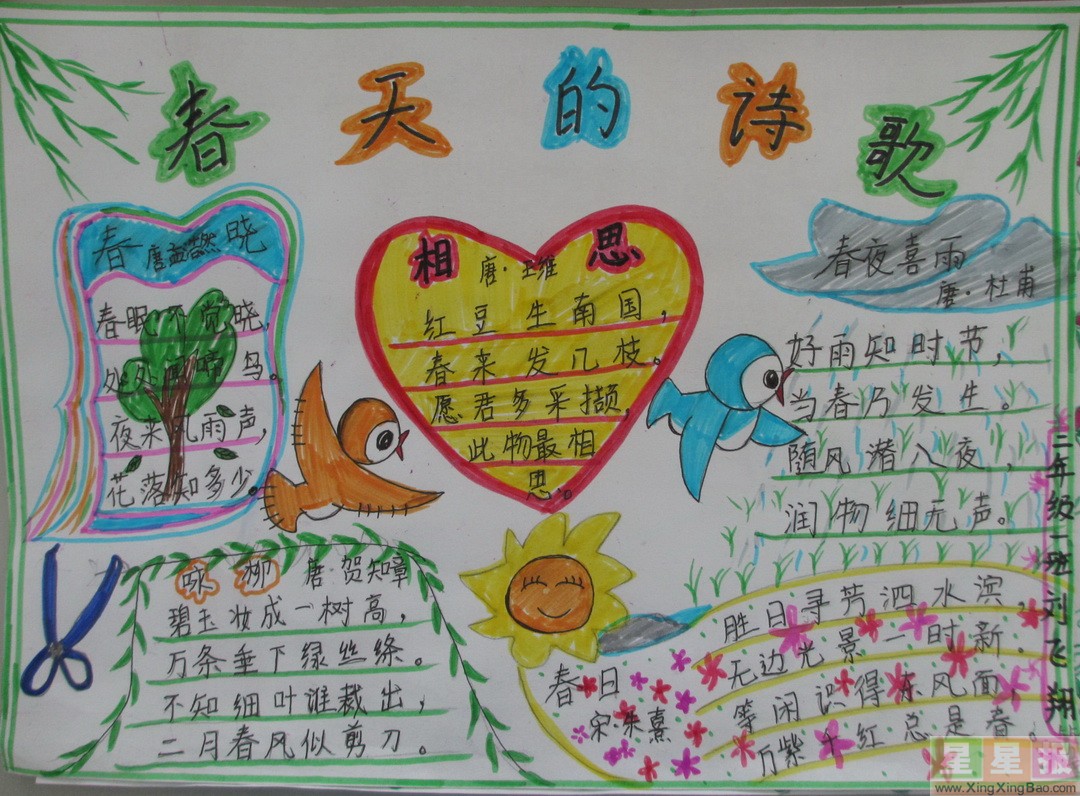 春天的诗歌
春晓
唐孟浩然
春眠不觉晓，
处处闻啼鸟。
夜来风雨声，
花落知多少。
相思
唐·王维
红豆生南国，
春来发几枝。
愿君多采撷，
此物最相
思。
春夜喜雨
唐·杜甫
好雨知时节，
当春乃发生。
随风潜入夜，
润物细无声。
咏柳 唐 贺知章
碧玉妆成一树高，
万条垂下绿丝绦。
不知细叶谁裁出，
二月春风似剪刀。
春日
宋 朱熹
胜日寻芳泗水滨，
无边光景一时新。
等闲识得东风面，
万紫千红总是春。
二年级一班刘飞翔
星星报
www.XingXingBao.com